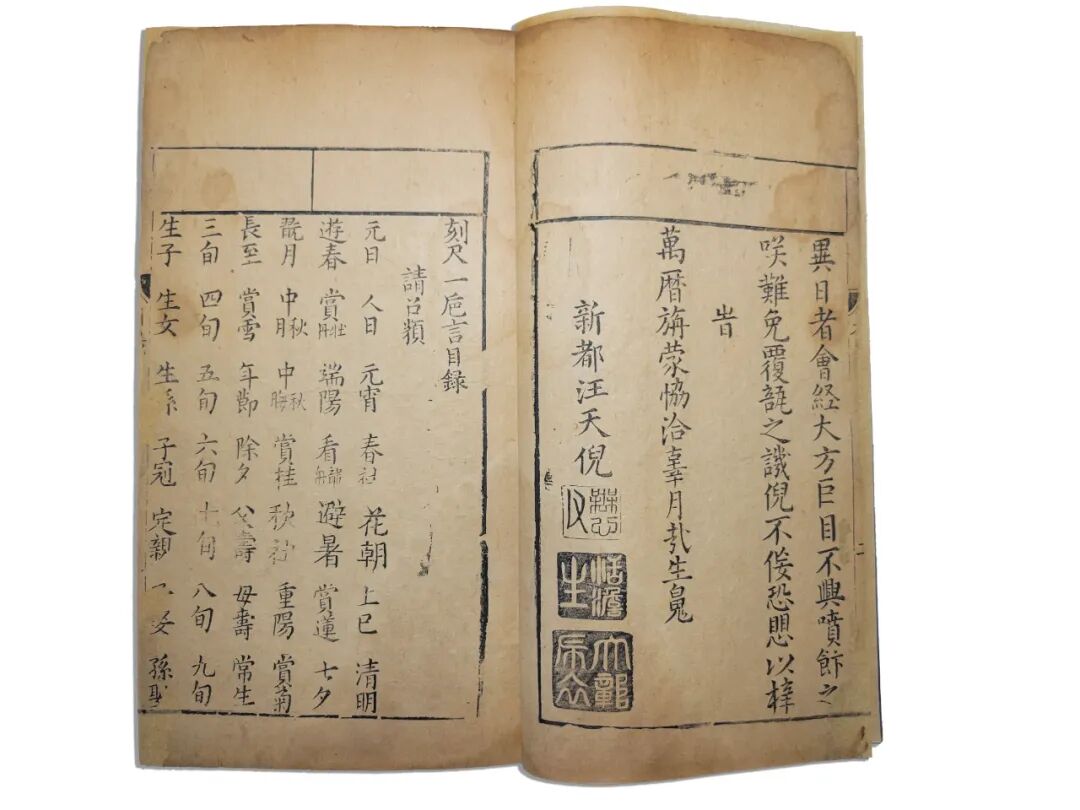 異日者會経大方巨目不興噴飰之
咲難免覆瓿之譏倪不佞恐愳以梓
旹
萬暦旃蒙恊洽辜月哉生魄
新都汪天倪
刻尺一巵言目錄
請召類
元日 人日 元宵 春社 花朝 上巳 清明
遊春 賞牡丹 端陽 看龍舟 避暑 賞蓮 七夕
翫月 中秋月 中秋晦 賞桂 秋社 重陽 賞菊
長至 賞雪 年節 除夕 父壽 母壽 常生
三旬 四旬 五旬 六旬 七旬 八旬 九旬
生子 生女 生孫 子冠 定親 孫